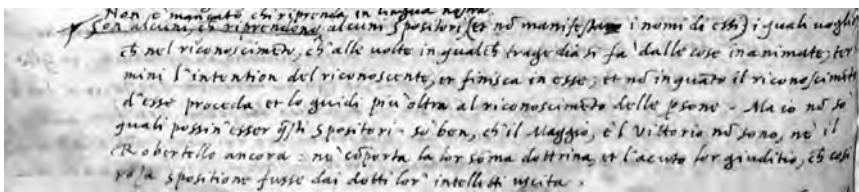 Non è mancato chi riprenda in lingua nostra
Son alcuni, ch riprendono alcuni spositori (et nõ manifestano i nomi di essi) i quali vogliõ
ch nel riconoscimẽto, ch'alle volte in qualch tragedia si fa dalle cose inanimate, ter
mini l'intention del riconoscente, et finisca in esse; et nõ inquãto il riconoscimẽto
d'esse proceda et lo guidi piu oltra al riconoscimẽto delle psone. Ma io nõ so
quali possin'esser q̃sti spositori. so ben, ch'il Maggio, e'l Vittorio nõ sono, ne il
Robertello ancora: ne cõporta la lor soma dottrina, et l'acuto lor giuditio, ch cosi
sposition fusse dai dotti lor' intelletti uscita.